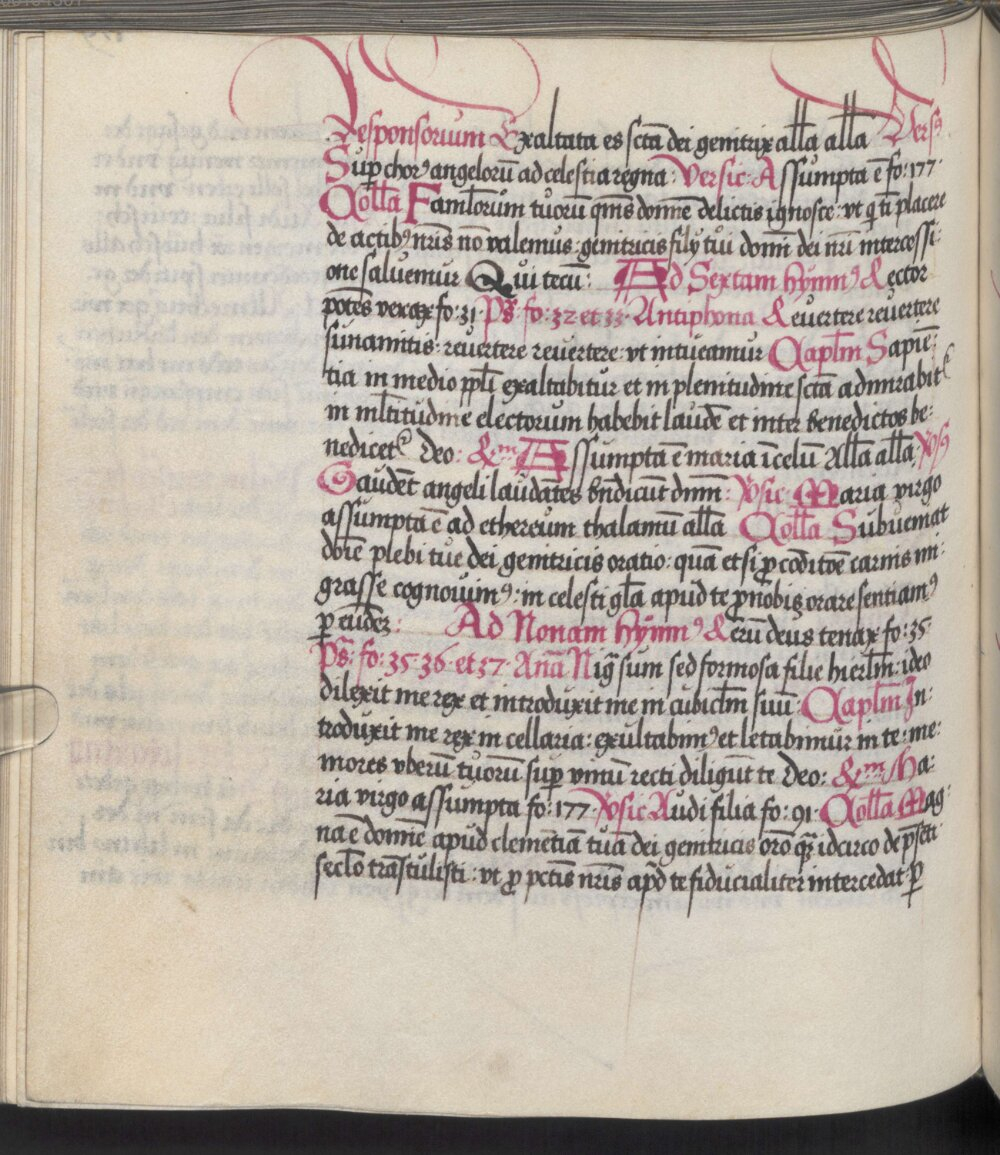 Responsorium Exaltata es sctā dei genitrix allā allā Vers⁹
Sup chor⁹ angelorū ad celestia regna: Versic: Assumpta ē fo: 177
Collā Famlorum tuorū qms domnē delictis ignosce: vt q ti placere
de actib⁹ nris nō valemus: genitricis filij tui domi dei nri intercessi:
one saluemur Qui tecū: Ad Sextam hymn⁹ Rector
potēs verax fo: 31 Ps̄: fo: 32 et 33 Antiphona Reuertere reuertere
sunamitis: reuertere reuertere: vt intueamur Caplm Sapiē:
tia in medio ppli exaltabitur et in plenitudine sctā admirabit᷑
in mltitudine electorum habebit laudē et inter benedictos be:
nedicet᷑ Deo: Rm Assumpta ē maria ī celū Allā allā: Vs⁹
Gaudēt angeli laudātes bndicūt dnm: Vsic Maria virgo
assumpta ē ad ethereum thalamū allā Collā Subueniat
dnē plebi tue dei genitricis oratio: quā etsi p cōditōe carnis mi
grasse cognouim⁹: in celesti glā apud te pnobis orare sentiam⁹
p eūdez: Ad Nonam hymn⁹ Rerū deus tenax fo: 35
Ps̄: fo: 35 36 et 37 Anā Nigsum sed formosa filie hierlm: ideo
dilexit me rex et introduxit me in cubiclm suū: Caplm In:
troduxit me rex in cellaria: exultabim⁹ et letabimur in te: me:
mores vberū tuorū sup vinū recti diligūt te Deo: Rm Ma:
ria virgo assumpta fo: 177 Vsic Audi filia fo: 91 Collā Mag
na ē domnē apud clemētiā tuā dei genitricis orō q̄ idcirco de psēti
seclo trāstulisti: vt p pctis nris apd te fiducialiter intercedat p